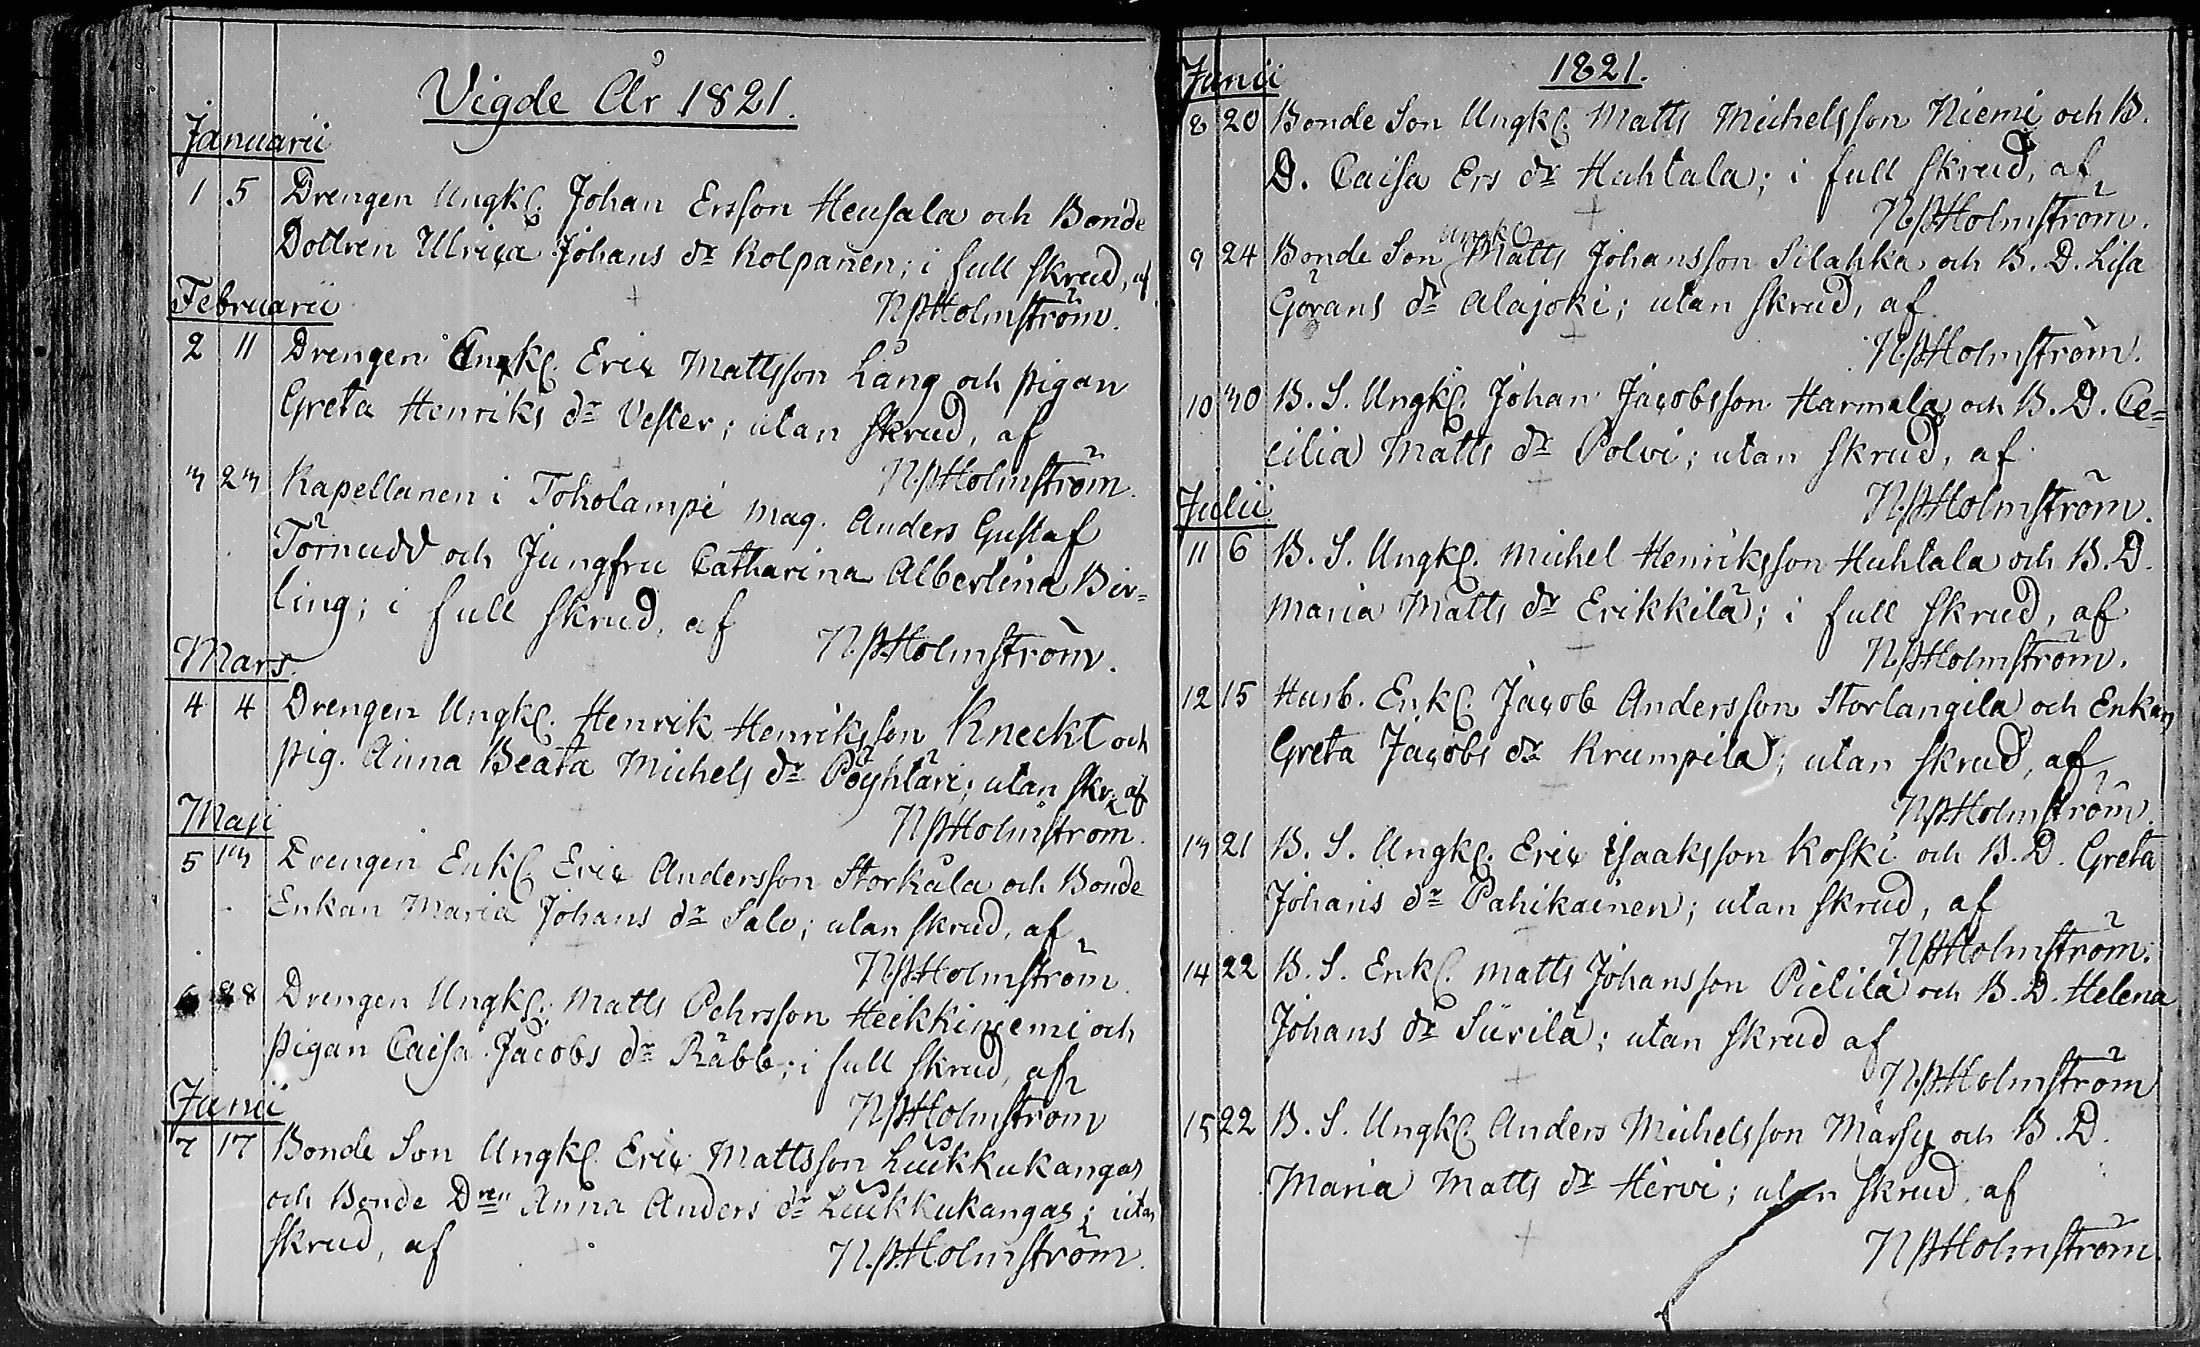 Vigde År 1821.
Januarii
1 5 Drengen Ungkl. Johan Ersson Heusala och Bonde
Dottren Ulrica Johans dr Kolpanen; i full skrud, af
N. P. Holmström.
Februarii
2 11 Drengen Ungkl. Eric Mattsson Lång och pigan
Greta Henriks dr Vester; utan skrud, af
N. P. Holmström.
3 23 Kapellanen i Toholampi mag. Anders Gustaf
Törnudd och Jungfru Catharina Albertina Bir=
ling; i full skrud, af
N. P. Holmström.
Mars.
4 4 Drengen Ungkl. Henrik Henriksson Kneckt och
pig. Anna Beata Michels dr Pöyhtäri; utan skr. af
N. P. Holmström.
Maji
5 13 Drengen Enkl. Eric Andersson Storkåla och Bonde
Enkan Maria Johans dr Salo; utan skrud, af
N. P. Holmström
28 Drengen Ungkl. Matts Pehrsson Heikkiniemi och
pigan Caisa Jacobs dr Räbb; i full skrud, af
N. P. Holmström
Junii
7 17 Bonde Son Ungkl. Eric Mattsson Luukkukangas
och Bonde Dren Anna Anders dr Luukkukangas; utan
skrud, af
N. P. Holmström.
1821.
Junii
8 20 Bonde Son Ungkl. Matts Michelsson Niemi och B.
D. Caisa Ers dr Huhtala; i full skrud, af
N. P. Holmström.
9 24 Bonde Son Ungkl. Matts Johansson Silahka och B. D. Lisa
Görans dr Alajoki; utan skrud, af
N. P. Holmström.
10 30 B. S. Ungkl. Johan Jacobsson Harmala och B. D. Ce=
cilia Matts dr Polvi; utan skrud, af
N. P. Holmström.
Julii
11 6 B. S. Ungkl. Michel Henriksson Huhtala och B. D.
Maria Matts dr Erikkilä; i full skrud, af
N. P. Holmström.
12 15 Husb. Enkl. Jacob Andersson Storlangila och Enkan
Greta Jacobs dr Krumpila; utan skrud, af
N. P. Holmström.
13 21 B. S. Ungkl. Eric Isaaksson Koski och B. D. Greta
Johans dr Pahikainen; utan skrud, af
N. P. Holmström.
14 22 B. S. Enkl. Matts Johansson Pielilä och B. D. Helena
Johans dr Siirilä; utan skrud af
N. P. Holmström
15 22 B. S. Ungkl. Anders Michelsson Märsy och B. D.
Maria Matts dr Hervi; utan skrud, af
N. P. Holmström.